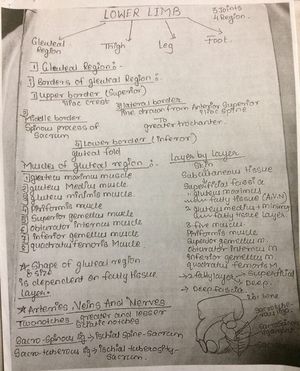 LOWER LIMB
3 Joints
4 Region.
Gluteal Region
Thigh
Leg
Foot.
1) Gluteal Region :-
1) Borders of gluteal Region :-
1) Upper border (Superior)
iliac crest
3) lateral border
line drawn from Anterior Superior
iliac Spine
To
greater trochanter.
2) Middle border
Spinous process of
Sacrum
4) Lower border (inferor)
gluteal fold
Muscles of gluteal region :-
1) gluteus maximus muscle
2) gluteus Medius muscle
3) gluteus minimus muscle.
4) Piriformis muscle
5) Superior gemellus muscle
6) Obturator internus muscle
7) Inferior gemellus muscle
8) quadratus femoris Muscle
Layer by layer
Skin
Subcutaneous tissue
Superficial fascia
gluteus maximus
fatty tissue (A.V.N)
gluteus medius + minimus
fatty tissue layer.
5 five muscles
Piriformis muscle
Superior gemellus m
Obturator internus m
Inferior gemellus m
quadratus femoris m
★ Shape of gluteal region
& size
is dependent on fatty tissue
layer.
2 fatty layer → Superficial
→ Deep.
→ Deep fascia
★ Arteries, Veins And Nerves
Two notches → greater and lesser
Sciatic notches
Sacro-Spinous lig → Ischial Spine - Sacrum
Sacro-tuberous lig → Ischial tuberosity -
Sacrum.